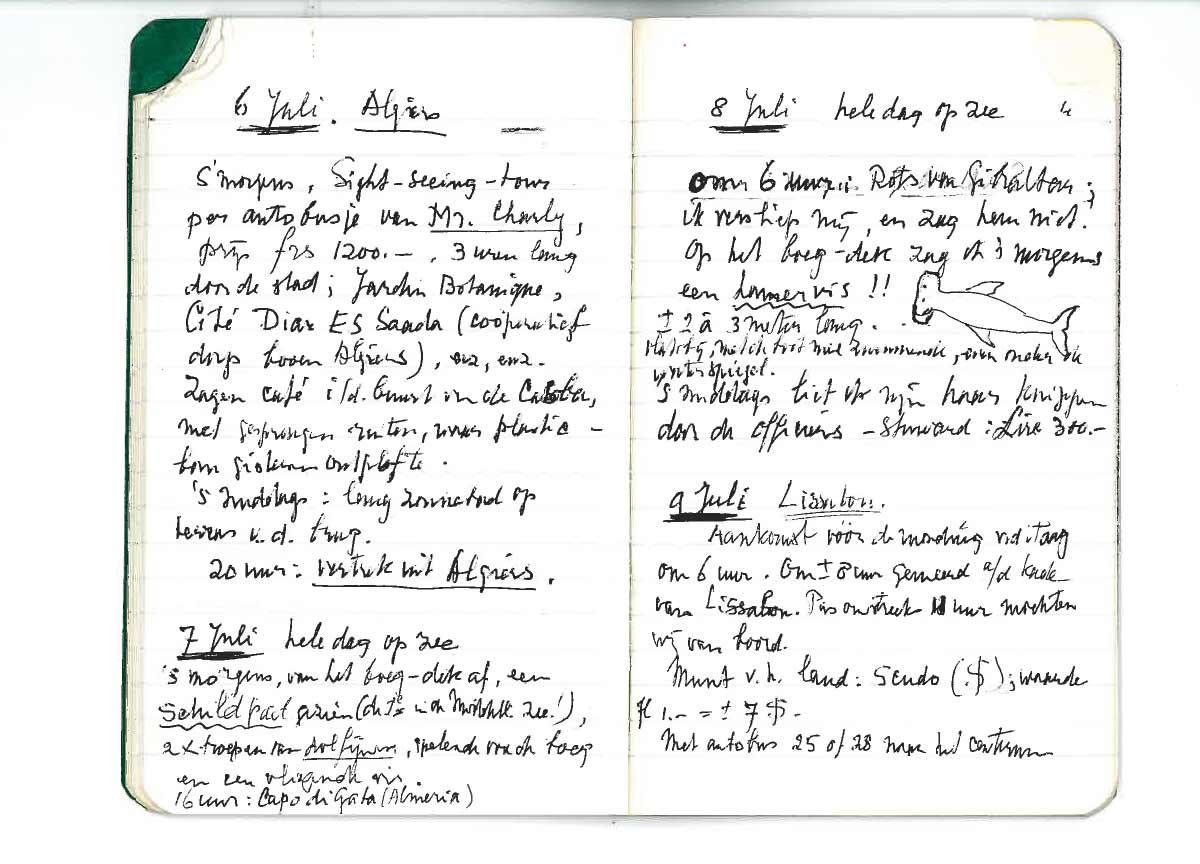 6 Juli. Algiers
S'morgens, Sight-seeing-tour
per autobusje van Mr. Charly,
prijs frs 1200.-, 3 uren lang
door de stad; Jardin Botanique,
Cité Diar ES Saada (coöperatief
dorp boven Algiers), enz, enz.
Zagen café i/d. buurt v.d. Casba,
met gesprongen ruiten, waar plastic-
bom gisteren ontplofte.
's middags: lang zonnebad op
v.d. brug.
20 uur: vertrek uit Algiers.
7 Juli hele dag op zee
's morgens, van het boeg-dek af, een
Schildpad gezien (de 1e in de Middell. zee!),
2 x troepen van dolfijnen, spelende voor de boeg
en een vliegende vis.
16 uur: Capo di Gata (Almeria)
8 Juli hele dag op zee 4
om 6 uur: Rots van Gibraltar;
ik versliep mij, en zag hem niet.
Op het boeg-dek zag ik 's morgens
een hamervis !!
± 2 à 3 meter lang.
vlakbij, met de boot mee zwemmende, even onder de
waterspiegel.
's middags liet ik mijn haar knippen
door de officiers-steward: Lire 300.-
9 Juli Lissabon.
Aankomst vóór de monding v.d. Taag
om 6 uur. Om ± 8 uur gemeerd a/d kade
van Lissabon. Pas omstreeks 11 uur mochten
wij van boord.
Munt v.h. land: Scudo ($); waarde
fl 1.- = ± 7 $-
Met autobus 25 of 28 naar het centrum